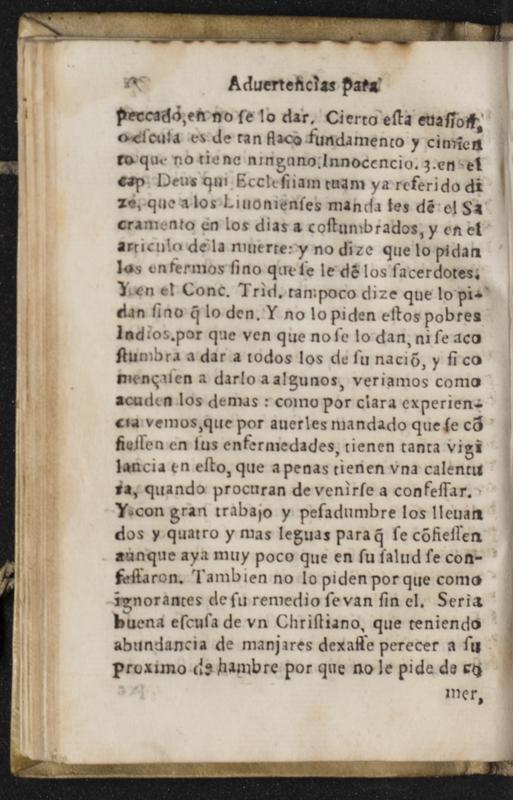 Aduertencias para
peccado, en no se lo dar. Cierto esta euasion,
o escusa es de tan flaco fundamento y cimien
to que no tiene ninguno. Innocencio. 3. en el
cap. Deus qui Ecclesiiam tuam ya referido di
ze, que a los Liuonienses manda les dẽ el Sa
cramento en los dias a costumbrados, y en el
articulo de la muerte: y no dize que lo pidan
los enfermos sino que se le dẽ los sacerdotes.
Y en el Conc. Trid. tampoco dize que lo pi-
dan sino q̃ lo den. Y no lo piden estos pobres
Indios. por que ven que no se lo dan, ni se aco
stumbra a dar a todos los de su naciõ, y si co
mençasen a darlo a algunos, veriamos como
acuden los demas: como por clara experien-
cia vemos, que por auerles mandado que se cõ
fiessen en sus enfermedades, tienen tanta vigi
lancia en esto, que apenas tienen vna calentu
ra, quando procuran de venirse a confessar.
Y con gran trabajo y pesadumbre los lleuan
dos y quatro y mas leguas para q̃ se cõfiessen
aunque aya muy poco que en su salud se con-
fessaron. Tambien no lo piden por que como
ignorantes de su remedio se van sin el. Seria
buena escusa de vn Christiano, que teniendo
abundancia de manjares dexasse perecer a su
proximo de hambre por que no le pide de co
mer,